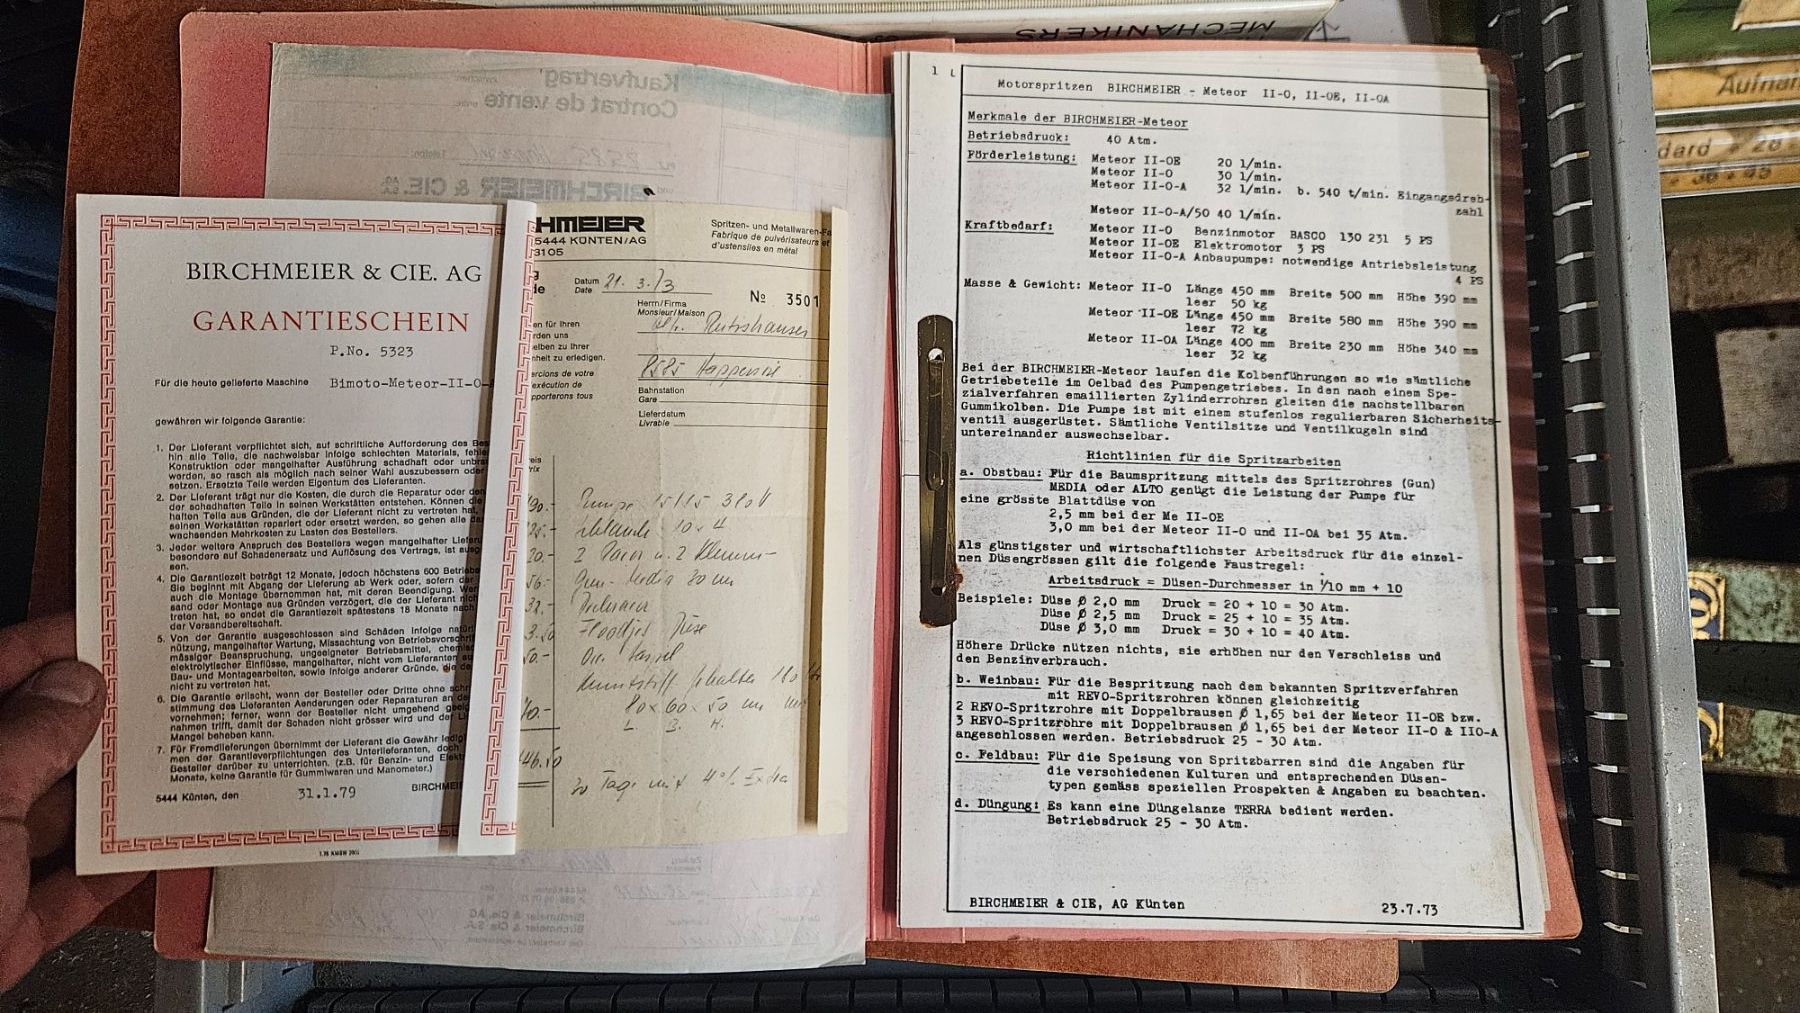 MECHANIKERS
Kaufvertrag
Contrat de vente
BIRCHMEIER & CIE. AG
BIRCHMEIER & CIE. AG
GARANTIESCHEIN
P.No. 5323
Für die heute gelieferte Maschine Bimoto-Meteor-II-O-A
gewähren wir folgende Garantie:
1. Der Lieferant verpflichtet sich, auf schriftliche Aufforderung des Bes
hin alle Teile, die nachweisbar infolge schlechten Materials, fehle
Konstruktion oder mangelhafter Ausführung schadhaft oder unbra
werden, so rasch als möglich nach seiner Wahl auszubessern oder
setzen. Ersetzte Teile werden Eigentum des Lieferanten.
2. Der Lieferant trägt nur die Kosten, die durch die Reparatur oder den
der schadhaften Teile in seinen Werkstätten entstehen. Können die
haften Teile aus Gründen, die der Lieferant nicht zu vertreten hat,
seinen Werkstätten repariert oder ersetzt werden, so gehen alle da
wachsenden Mehrkosten zu Lasten des Bestellers.
3. Jeder weitere Anspruch des Bestellers wegen mangelhafter Liefer
besondere auf Schadenersatz und Auflösung des Vertrags, ist ausg
sen.
4. Die Garantiezeit beträgt 12 Monate, jedoch höchstens 600 Betriebs
Sie beginnt mit Abgang der Lieferung ab Werk oder, sofern der
auch die Montage übernommen hat, mit deren Beendigung. Wer
sand oder Montage aus Gründen verzögert, die der Lieferant nich
treten hat, so endet die Garantiezeit spätestens 18 Monate nach
der Versandbereitschaft.
5. Von der Garantie ausgeschlossen sind Schäden infolge natür
nützung, mangelhafter Wartung, Missachtung von Betriebsvorschri
mässiger Beanspruchung, ungeeigneter Betriebsmittel, chemisc
elektrolytischer Einflüsse, mangelhafter, nicht vom Lieferanten au
Bau- und Montagearbeiten, sowie infolge anderer Gründe, die de
nicht zu vertreten hat.
6. Die Garantie erlischt, wenn der Besteller oder Dritte ohne schr
stimmung des Lieferanten Aenderungen oder Reparaturen an de
vornehmen; ferner, wenn der Besteller nicht umgehend geeig
nahmen trifft, damit der Schaden nicht grösser wird und der Li
Mangel beheben kann.
7. Für Fremdlieferungen übernimmt der Lieferant die Gewähr ledigl
men der Garantieverpflichtungen des Unterlieferanten, doch
Besteller darüber zu unterrichten. (z.B. für Benzin- und Elekt
Monate, keine Garantie für Gummiwaren und Manometer.)
5444 Künten, den 31.1.79 BIRCHMEIE
HMEIER
5444 KÜNTEN/AG
3105
Spritzen- und Metallwaren-Fa
Fabrique de pulvérisateurs et
d'ustensiles en métal
Datum
Date 21. 3. 73
Nº 3501
Herrn/Firma
Monsieur/Maison
Rutishauser
en für Ihren
rden uns
elben zu Ihrer
nheit zu erledigen.
ercions de votre
exécution de
pporterons tous
8585 Happerswil
Bahnstation
Gare
Lieferdatum
Livrable
reis
rix
90.- Pumpe 15/15 380 V
25.- 10 x 4
20.- 2
56.- Gun-Media 80 cm
32.-
3.50 Floodjet Düse
50.-
Kunststoff Behälter 180
80 x 60 x 50 cm
L. B. H.
46.50
30 Tage mit 4% Extra
1 L
Motorspritzen BIRCHMEIER - Meteor II-O, II-OE, II-OA
Merkmale der BIRCHMEIER-Meteor
Betriebsdruck: 40 Atm.
Förderleistung: Meteor II-OE 20 l/min.
Meteor II-O 30 l/min.
Meteor II-O-A 32 l/min. b. 540 t/min. Eingangsdreh-
zahl
Meteor II-O-A/50 40 l/min.
Kraftbedarf: Meteor II-O Benzinmotor BASCO 130 231 5 PS
Meteor II-OE Elektromotor 3 PS
Meteor II-O-A Anbaupumpe: notwendige Antriebsleistung
4 PS
Masse & Gewicht: Meteor II-O Länge 450 mm Breite 500 mm Höhe 390 mm
leer 50 kg
Meteor II-OE Länge 450 mm Breite 580 mm Höhe 390 mm
leer 72 kg
Meteor II-OA Länge 400 mm Breite 230 mm Höhe 340 mm
leer 32 kg
Bei der BIRCHMEIER-Meteor laufen die Kolbenführungen so wie sämtliche
Getriebeteile im Oelbad des Pumpengetriebes. In den nach einem Spe-
zialverfahren emaillierten Zylinderrohren gleiten die nachstellbaren
Gummikolben. Die Pumpe ist mit einem stufenlos regulierbaren Sicherheits-
ventil ausgerüstet. Sämtliche Ventilsitze und Ventilkugeln sind
untereinander auswechselbar.
Richtlinien für die Spritzarbeiten
a. Obstbau: Für die Baumspritzung mittels des Spritzrohres (Gun)
MEDIA oder ALTO genügt die Leistung der Pumpe für
eine grösste Blattdüse von
2,5 mm bei der Me II-OE
3,0 mm bei der Meteor II-O und II-OA bei 35 Atm.
Als günstigster und wirtschaftlichster Arbeitsdruck für die einzel-
nen Düsengrössen gilt die folgende Faustregel:
Arbeitsdruck = Düsen-Durchmesser in 1/10 mm + 10
Beispiele: Düse Ø 2,0 mm Druck = 20 + 10 = 30 Atm.
Düse Ø 2,5 mm Druck = 25 + 10 = 35 Atm.
Düse Ø 3,0 mm Druck = 30 + 10 = 40 Atm.
Höhere Drücke nützen nichts, sie erhöhen nur den Verschleiss und
den Benzinverbrauch.
b. Weinbau: Für die Bespritzung nach dem bekannten Spritzverfahren
mit REVO-Spritzrohren können gleichzeitig
2 REVO-Spritzrohre mit Doppelbrausen Ø 1,65 bei der Meteor II-OE bzw.
3 REVO-Spritzrohre mit Doppelbrausen Ø 1,65 bei der Meteor II-O & IIO-A
angeschlossen werden. Betriebsdruck 25 - 30 Atm.
c. Feldbau: Für die Speisung von Spritzbarren sind die Angaben für
die verschiedenen Kulturen und entsprechenden Düsen-
typen gemäss speziellen Prospekten & Angaben zu beachten.
d. Düngung: Es kann eine Düngelanze TERRA bedient werden.
Betriebsdruck 25 - 30 Atm.
BIRCHMEIER & CIE, AG Künten 23.7.73
Aufnah
dard